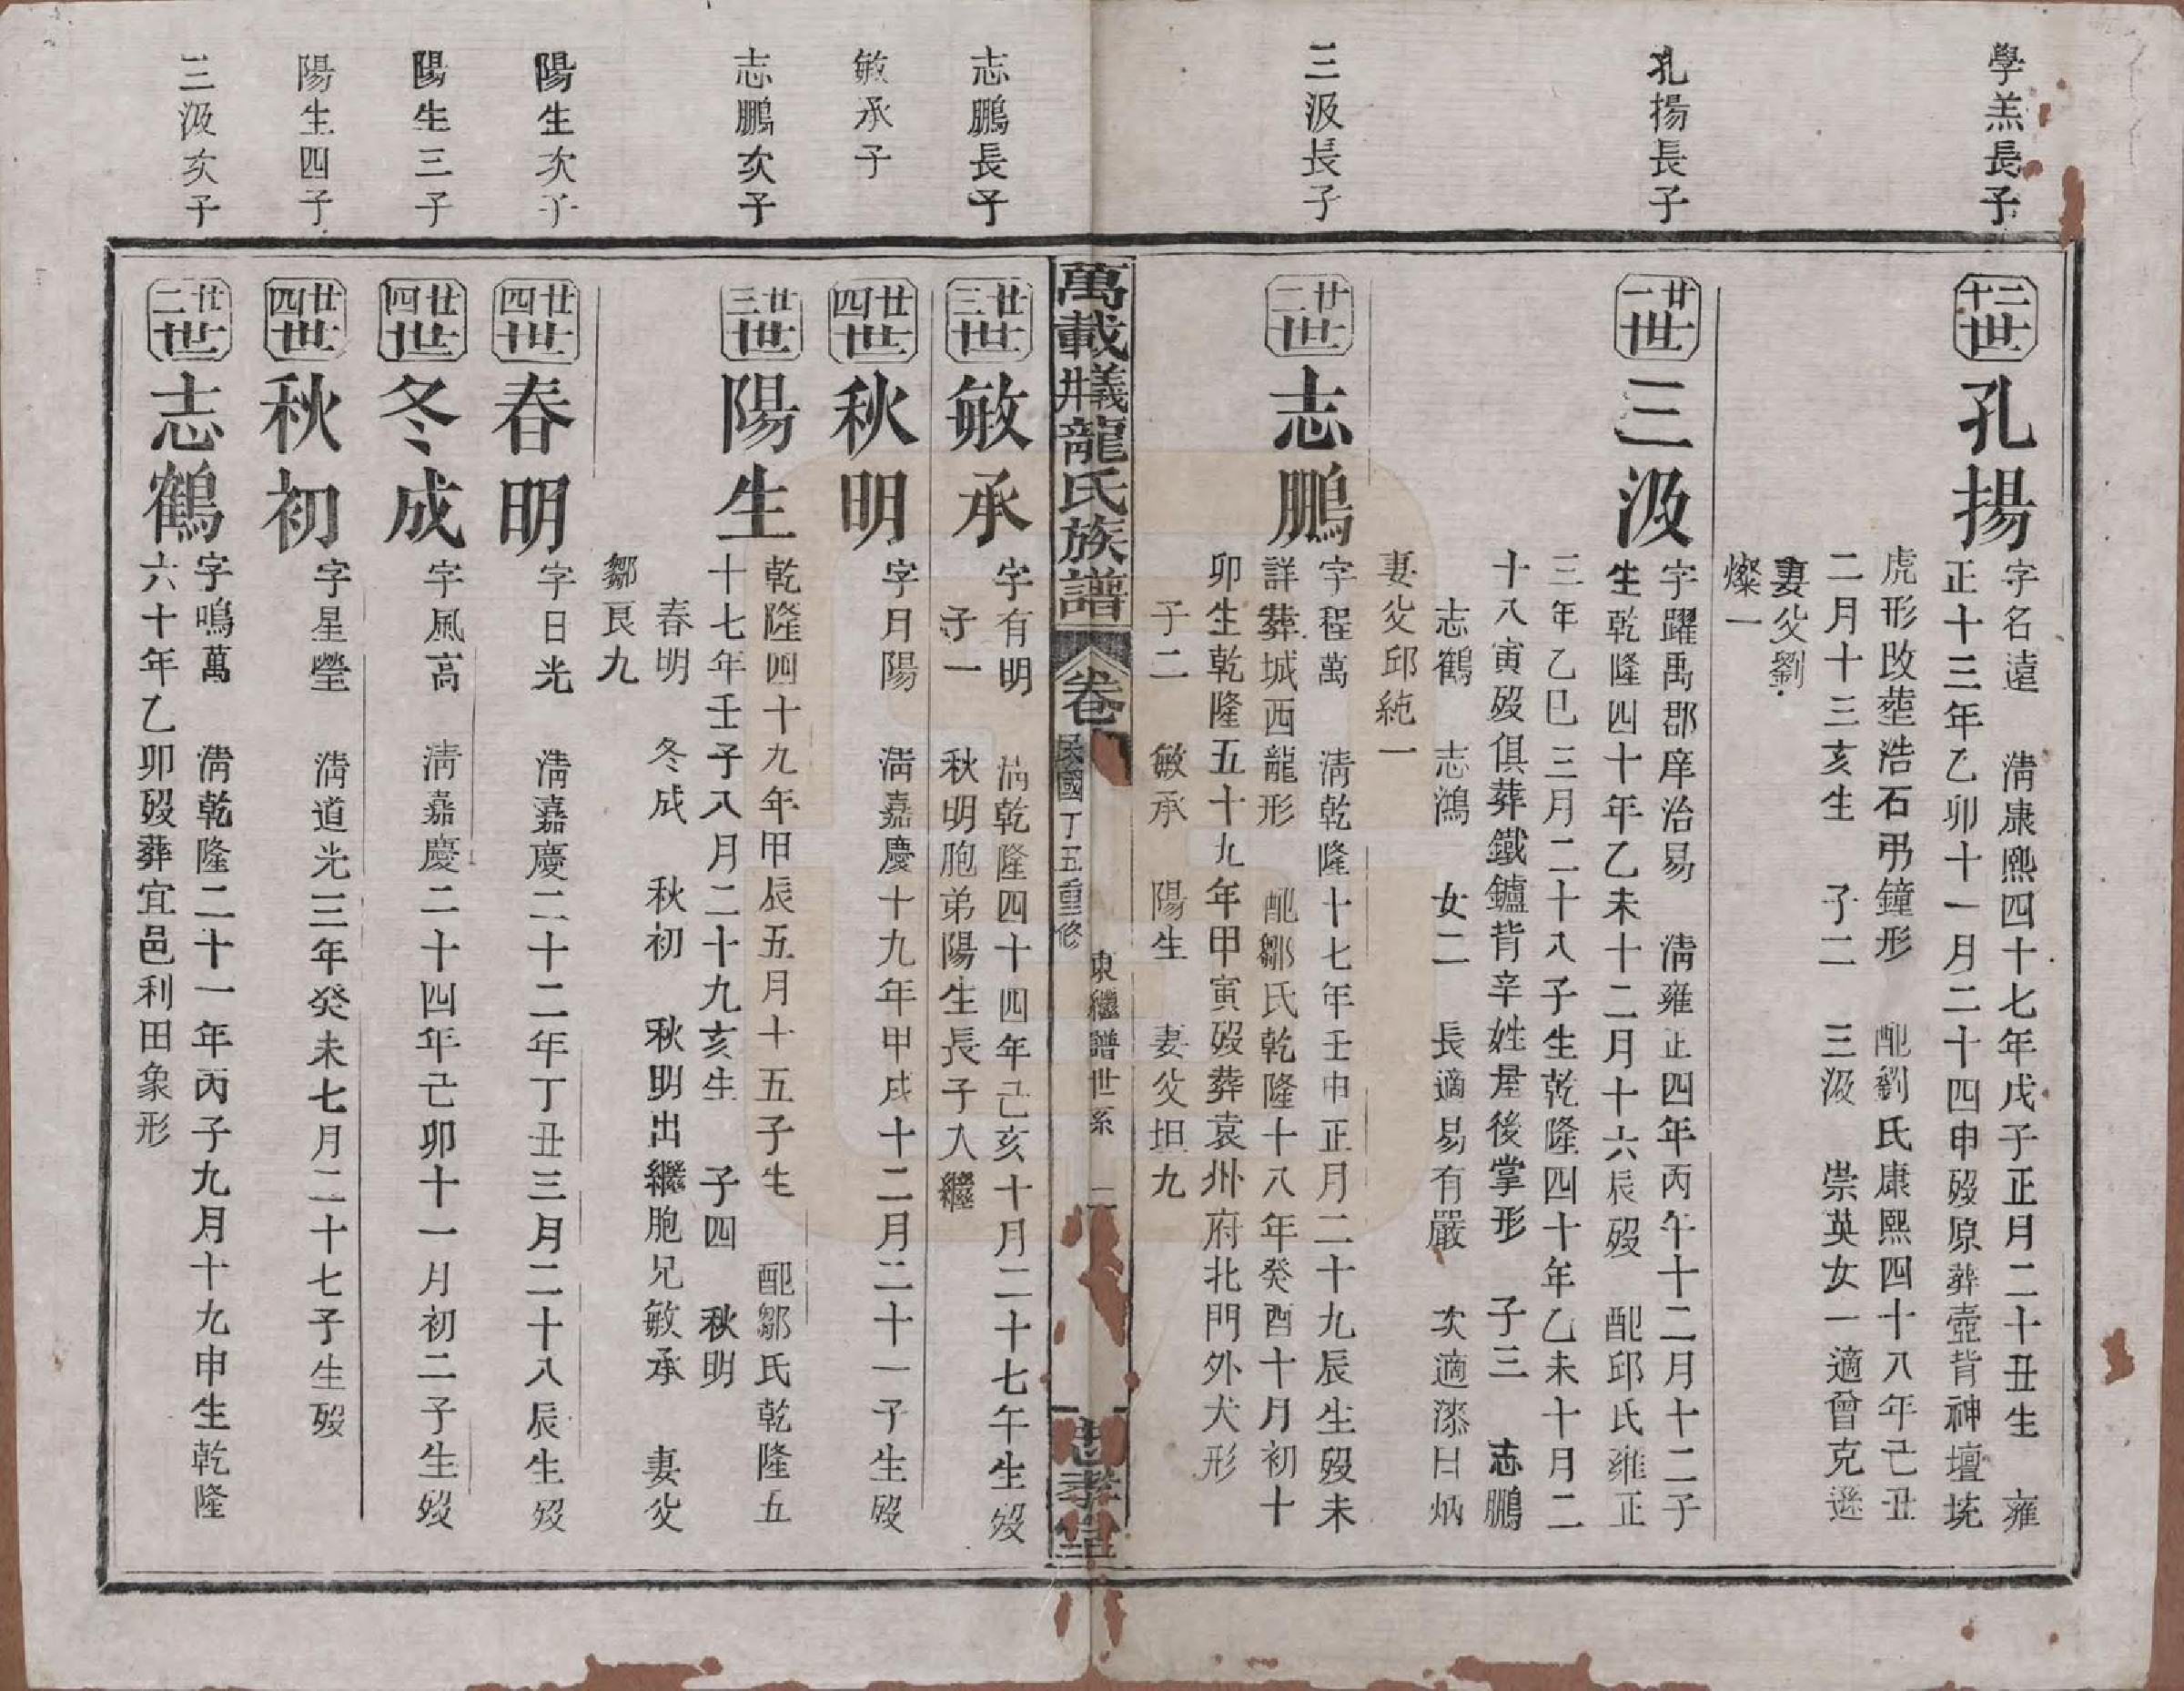 學羔長子
二十世 孔揚
字名遠 清康熙四十七年戊子正月二十丑生 雍
正十三年乙卯十一月二十四申歿原葬壺背神壇垅
虎形改塟浩石形鐘形 配劉氏康熙四十八年己丑
二月十三亥生 子二 三汲 崇英女一適曾克遜
妻父劉
燦一
孔揚長子
廿一世 三汲
字躍禹郡庠治易 清雍正四年丙午十二月十二子
生乾隆四十年乙未十二月十六辰歿 配邱氏雍正
三年乙巳三月二十八子生乾隆四十年乙未十月二
十八寅歿俱葬鐵鑪背辛姓屋後掌形 子三 志鵬
志鶴 志鴻 女二 長適易有嚴 次適漆日炳
妻父邱純一
三汲長子
廿二世 志鵬
字程萬 清乾隆十七年壬申正月二十九辰生歿未
詳葬城西龍形 配鄒氏乾隆十八年癸酉十月初十
卯生乾隆五十九年甲寅歿葬袁州府北門外犬形
子二 敏承 陽生 妻父坦九
萬載井義龍氏族譜 卷 民國丁丑重修 東繼譜世系 二 忠孝堂
志鵬長子
廿三世 敏承
字有明 清乾隆四十四年己亥十月二十七午生歿
子一 秋明胞弟陽生長子入繼
敏承子
廿四世 秋明
字月陽 清嘉慶十九年甲戌十二月二十一子生歿
志鵬次子
廿三世 陽生
乾隆四十九年甲辰五月十五子生 配鄒氏乾隆五
十七年壬子八月二十九亥生 子四 秋明
春明 冬成 秋初 秋明出繼胞兄敏承 妻父
鄒艮九
陽生次子
廿四世 春明
字日光 清嘉慶二十二年丁丑三月二十八辰生歿
陽生三子
廿四世 冬成
字風高 清嘉慶二十四年己卯十一月初二子生歿
陽生四子
廿四世 秋初
字星瑩 清道光三年癸未七月二十七子生歿
三汲次子
廿二世 志鶴
字鳴萬 清乾隆二十一年丙子九月十九申生乾隆
六十年乙卯歿葬宜邑利田象形